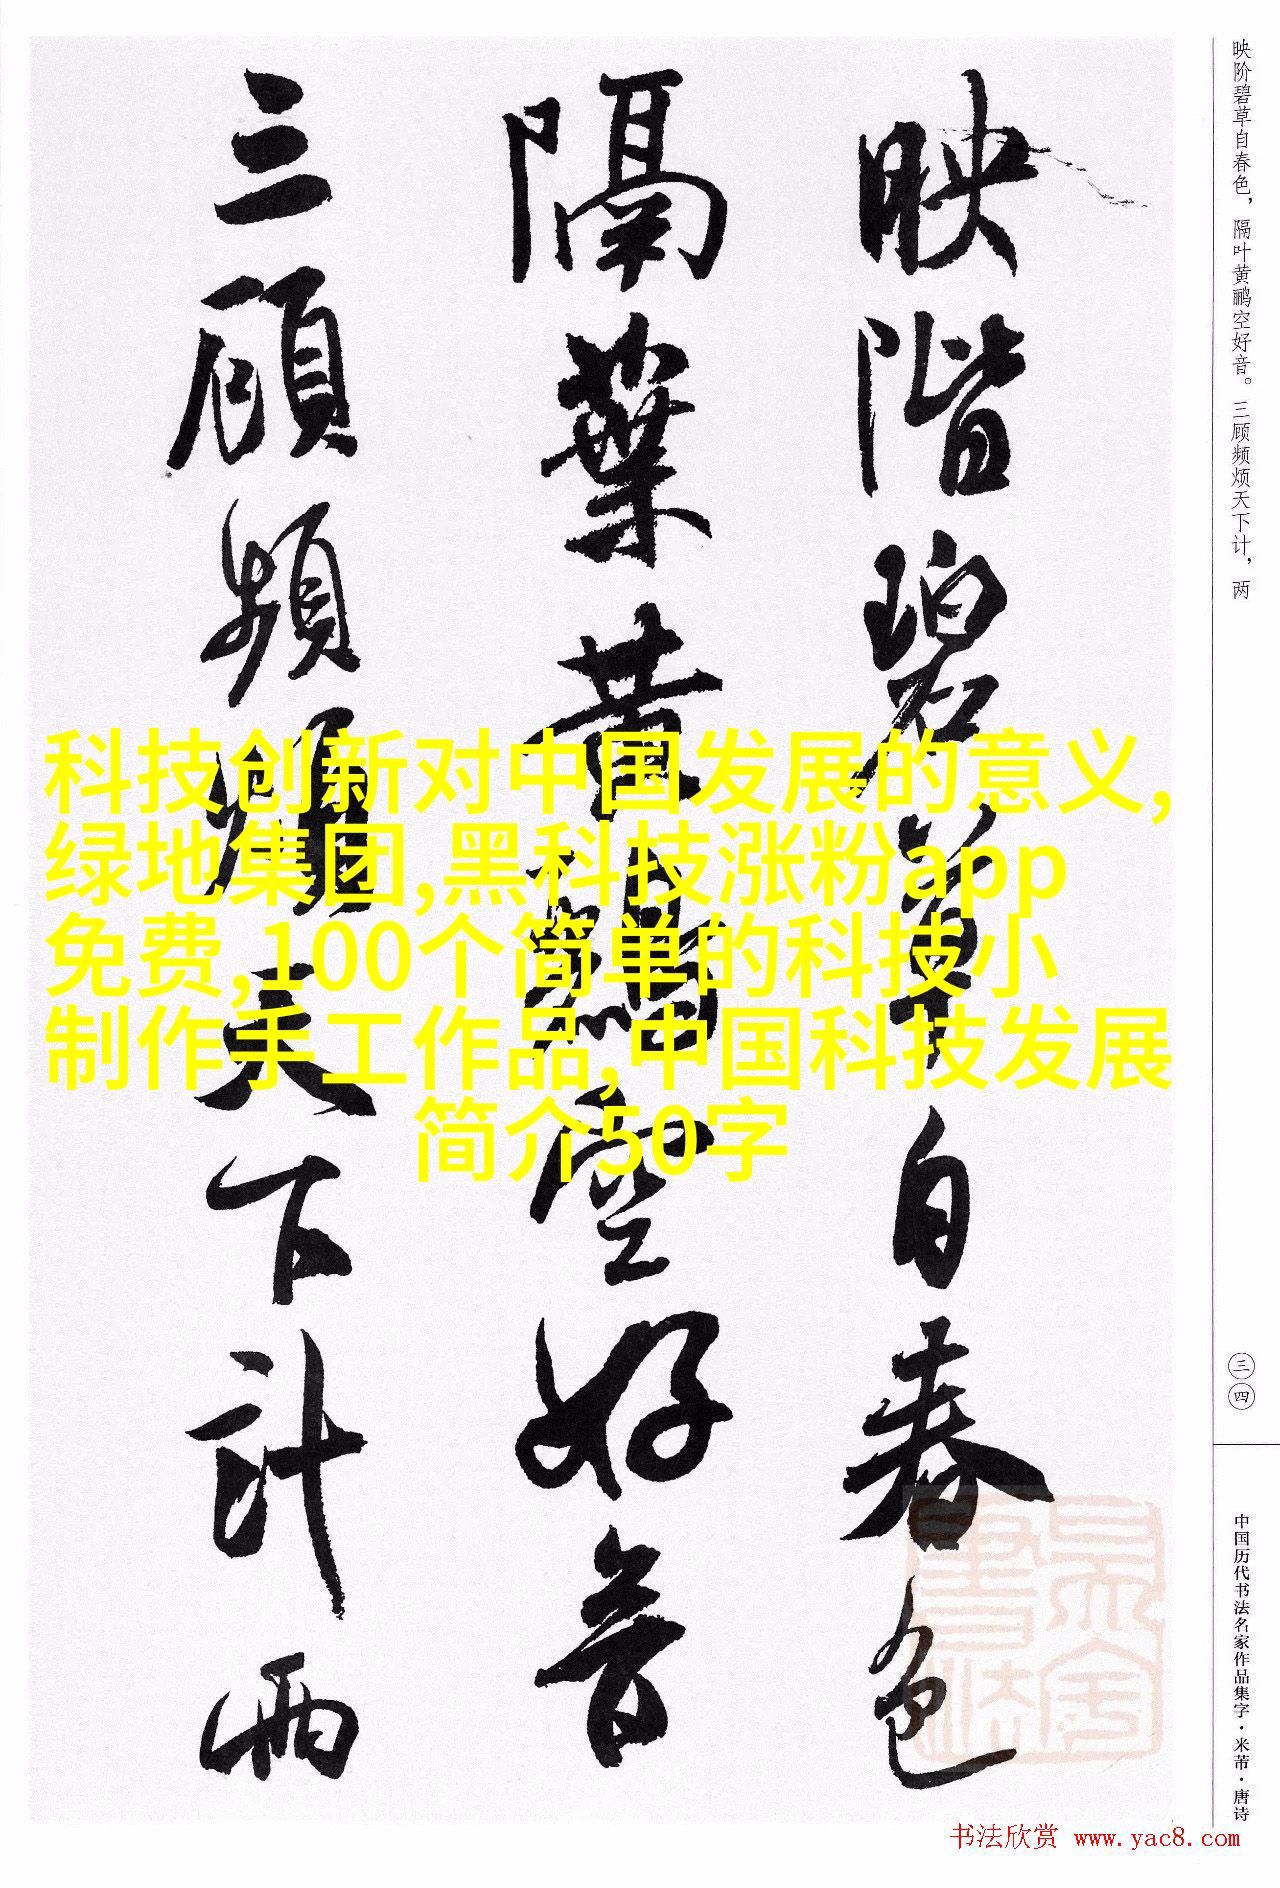 映阶碧草自春色，隔叶黄鹂空好音。三顾频烦天下计，两
映階碧草自春色
隔葉黄鸝空好音
三顧頻煩天下計兩
科技创新对中国发展的意义,
绿地集团,黑科技涨粉app
免费,100个简单的科技小
制作手工作品,中国科技发展
简介50字
三四
中国历代书法名家作品集字·米芾·唐诗
书法欣赏 www.yac8.com